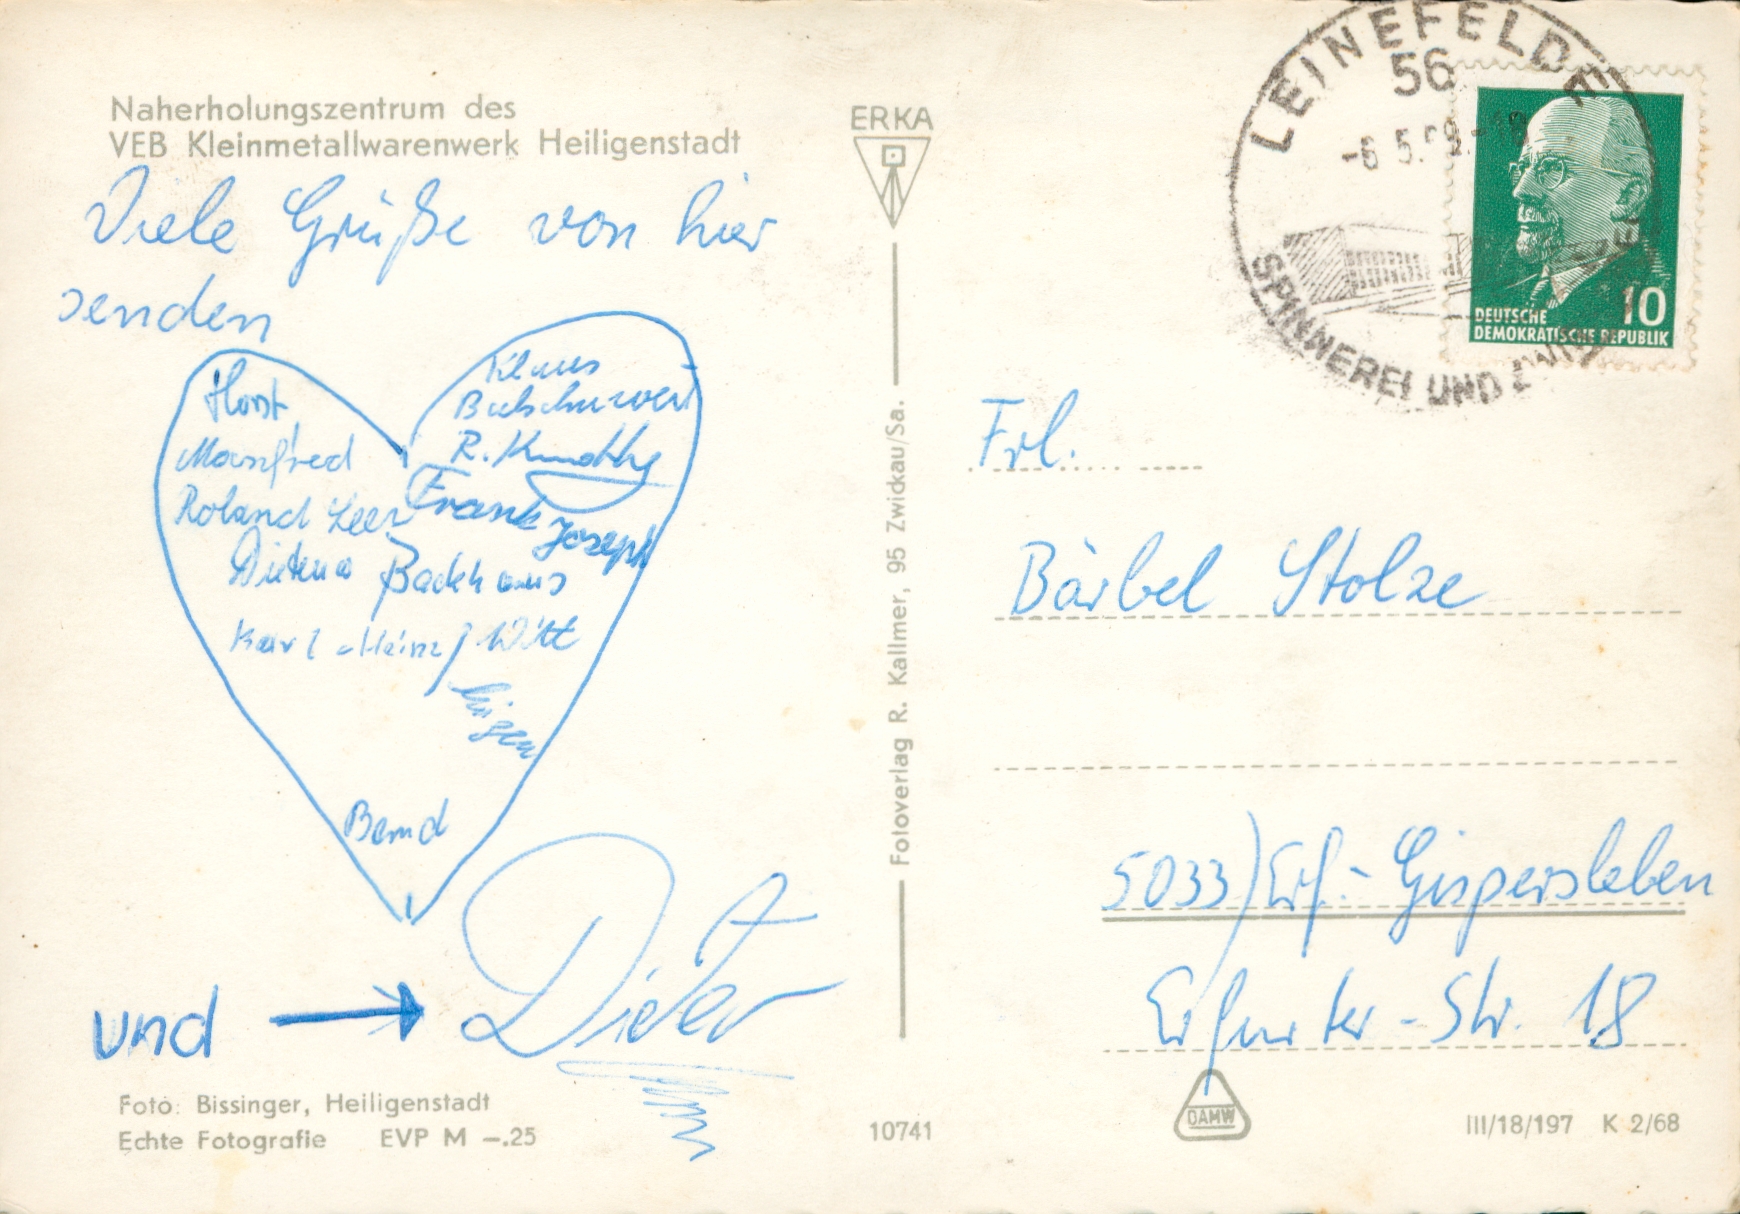 Naherholungszentrum des
VEB Kleinmetallwarenwerk Heiligenstadt
Viele Grüße von hier
senden
Horst
Manfred
Roland Leer
Backhaus
Karl-Heinz Witt
Jürgen
Bernd
Klaus
R.
Frank
Joseph
und → Dieter
Foto: Bissinger, Heiligenstadt
Echte Fotografie EVP M -.25
ERKA
Fotoverlag R. Kallmer, 95 Zwickau/Sa.
10741
LEINEFELDE
56
SPINNEREI UND
10
DEUTSCHE
DEMOKRATISCHE REPUBLIK
Frl.
Bärbel Stolze
5033) Erf.- Gispersleben
Erfurter-Str. 18
DAMW
III/18/197 K 2/68